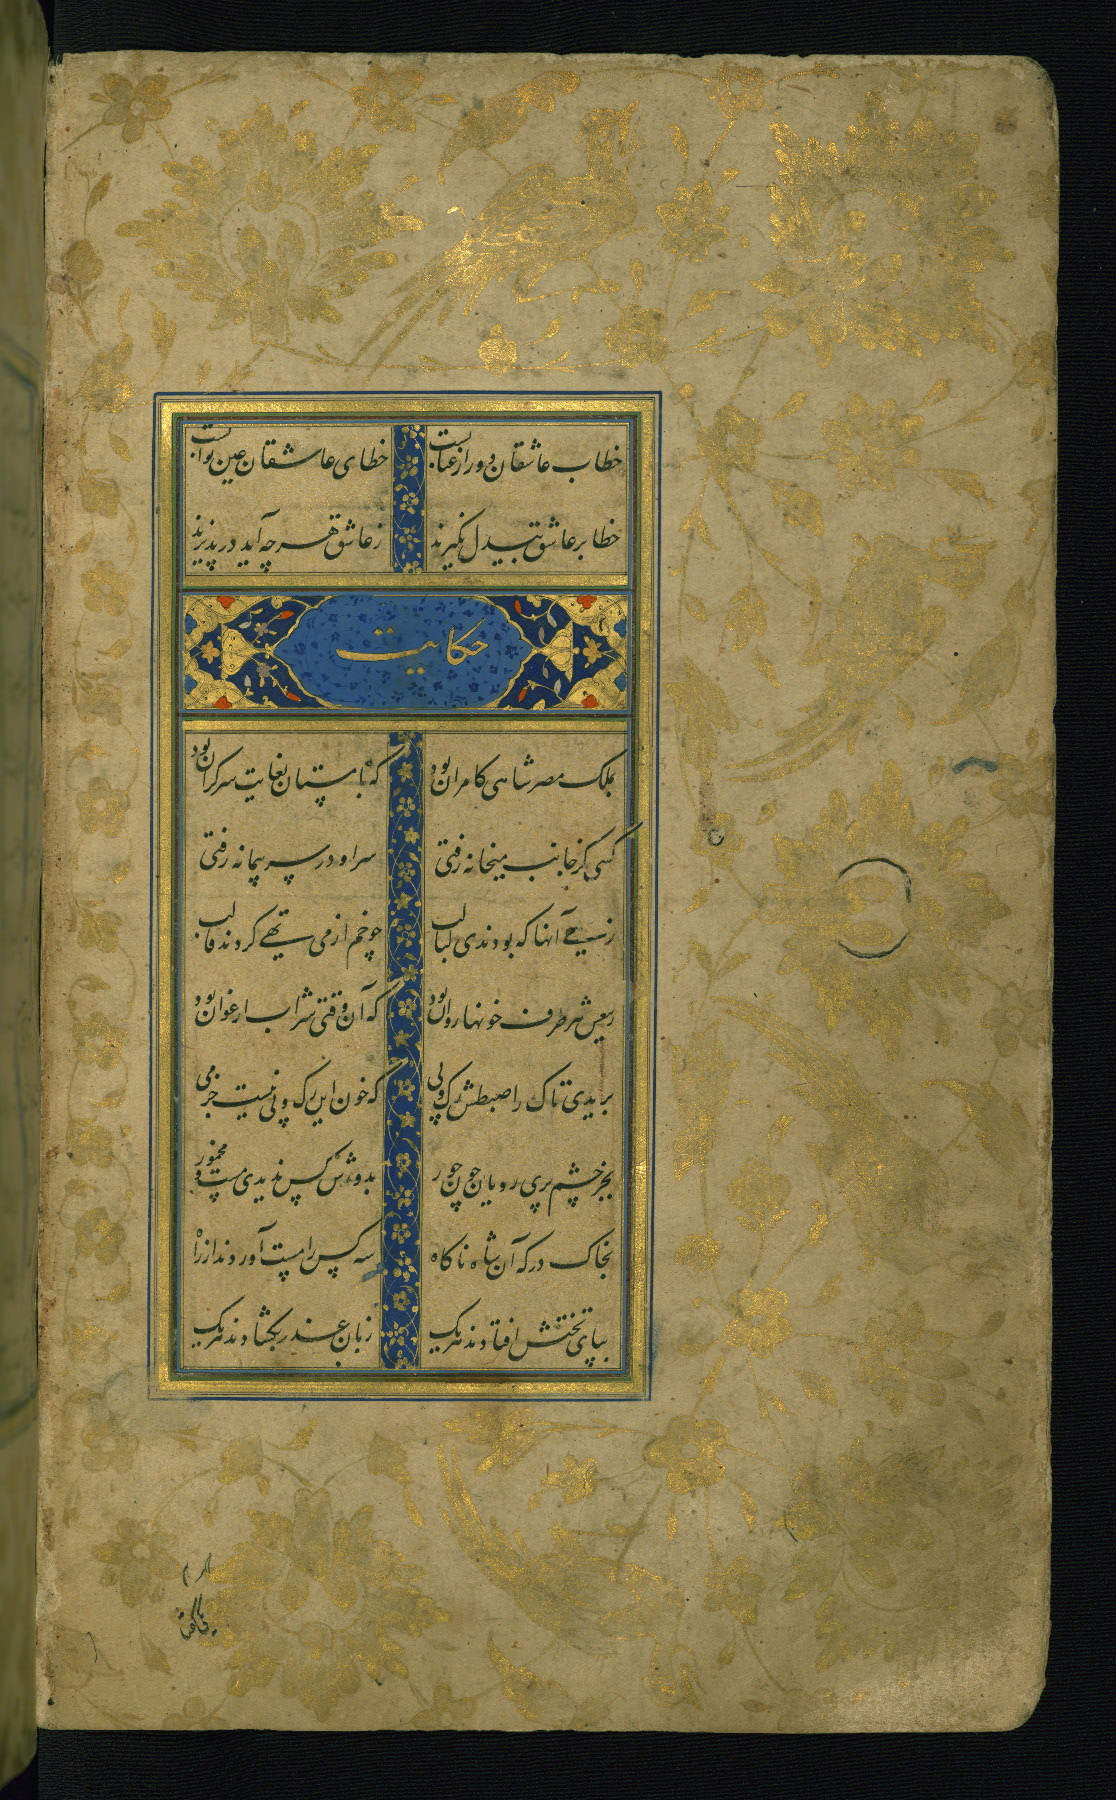 خطاب عاشقان دور از عتابست خطای عاشقان عین ثوابست
خطا بر عاشق بیدل نگیرند ز عاشق هر چه آید در پذیرند
حکایت
بملک مصر شاهی کامران بود که با مستان بغایت سرگران بود
کسی کز جانب میخانه رفتی سر او در سر پیمانه رفتی
ز می آنها که بودندی لبالب چو خم از می تهی کردند قالب
ز تیغش هر طرف خونها روان بود که آن وقتی شراب ارغوان بود
بریدی تاک را ضبطش رگ و پی که خون این رگ و پی نیست جز می
بجز چشم پری رویان چون حور بدورش کس ندیدی مست و مخمور
بخاک درگه آن شاه ناگاه سه کس را مست آوردند از راه
بپای تختش افتادند هر یک زبان عذر بگشادند هر یک